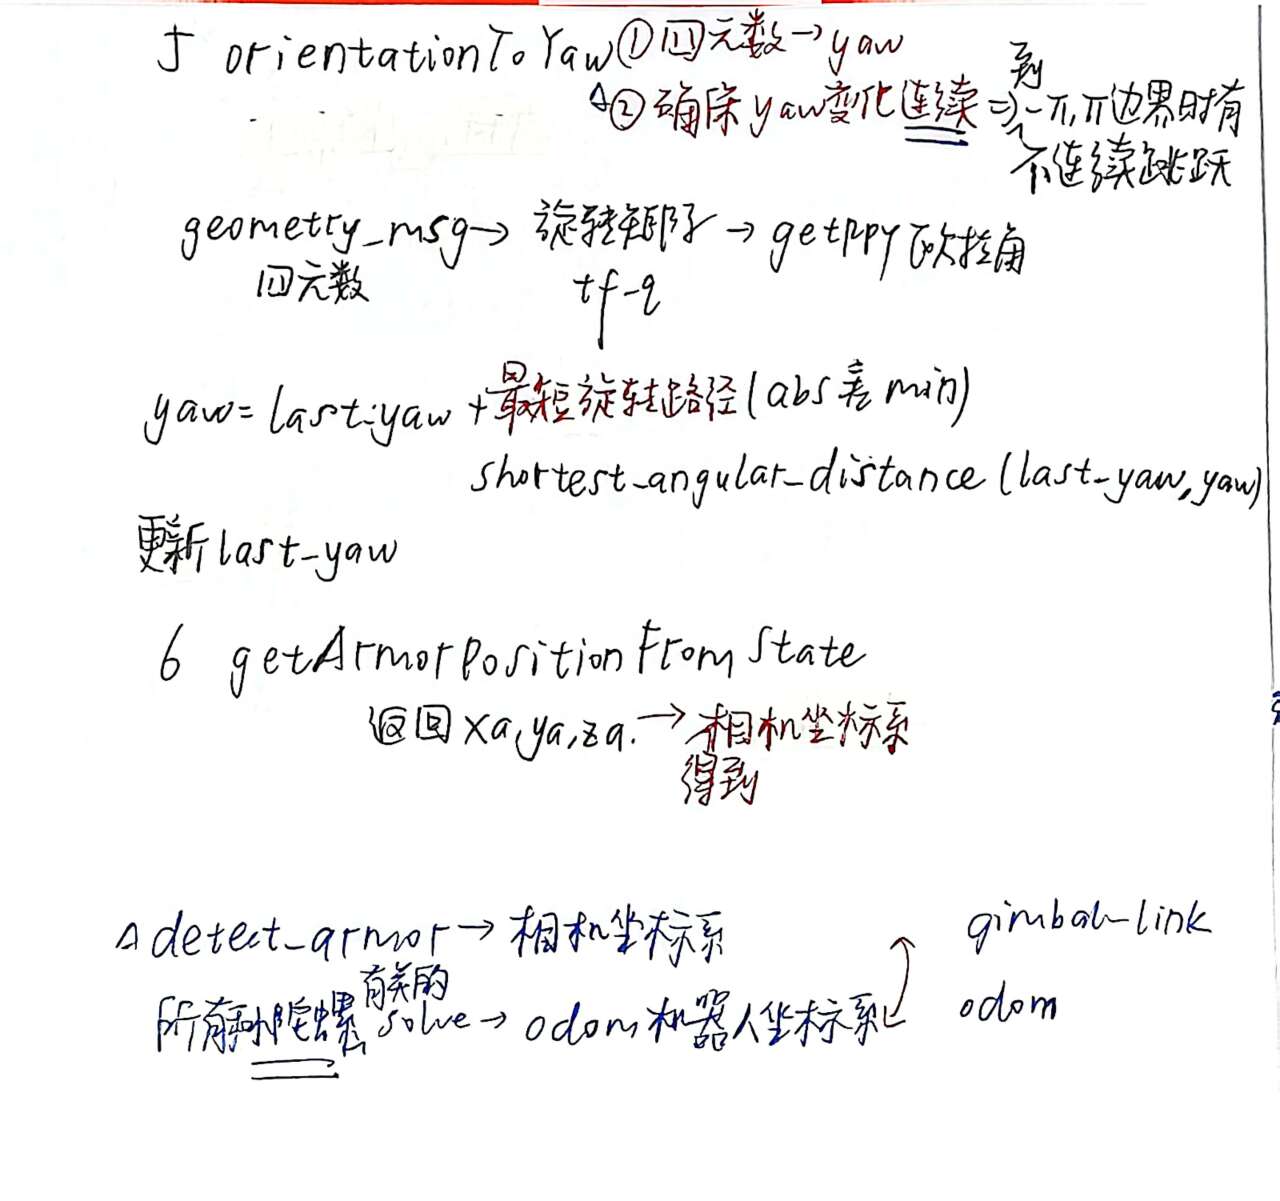 5 orientationToYaw ①四元数→yaw
△②确保yaw变化连续⇒到-π,π边界时有
不连续跳跃
geometry_msg→旋转矩阵→getRPY欧拉角
四元数 tf-q
yaw=last-yaw+最短旋转路径(abs差min)
shortest_angular_distance(last-yaw,yaw)
更新last-yaw
6 getArmorPositionFromState
返回xa,ya,za.→相机坐标系
得到
△detect_armor→相机坐标系 gimbal-link
所有和陀螺有关的solve→odom机器人坐标系 odom